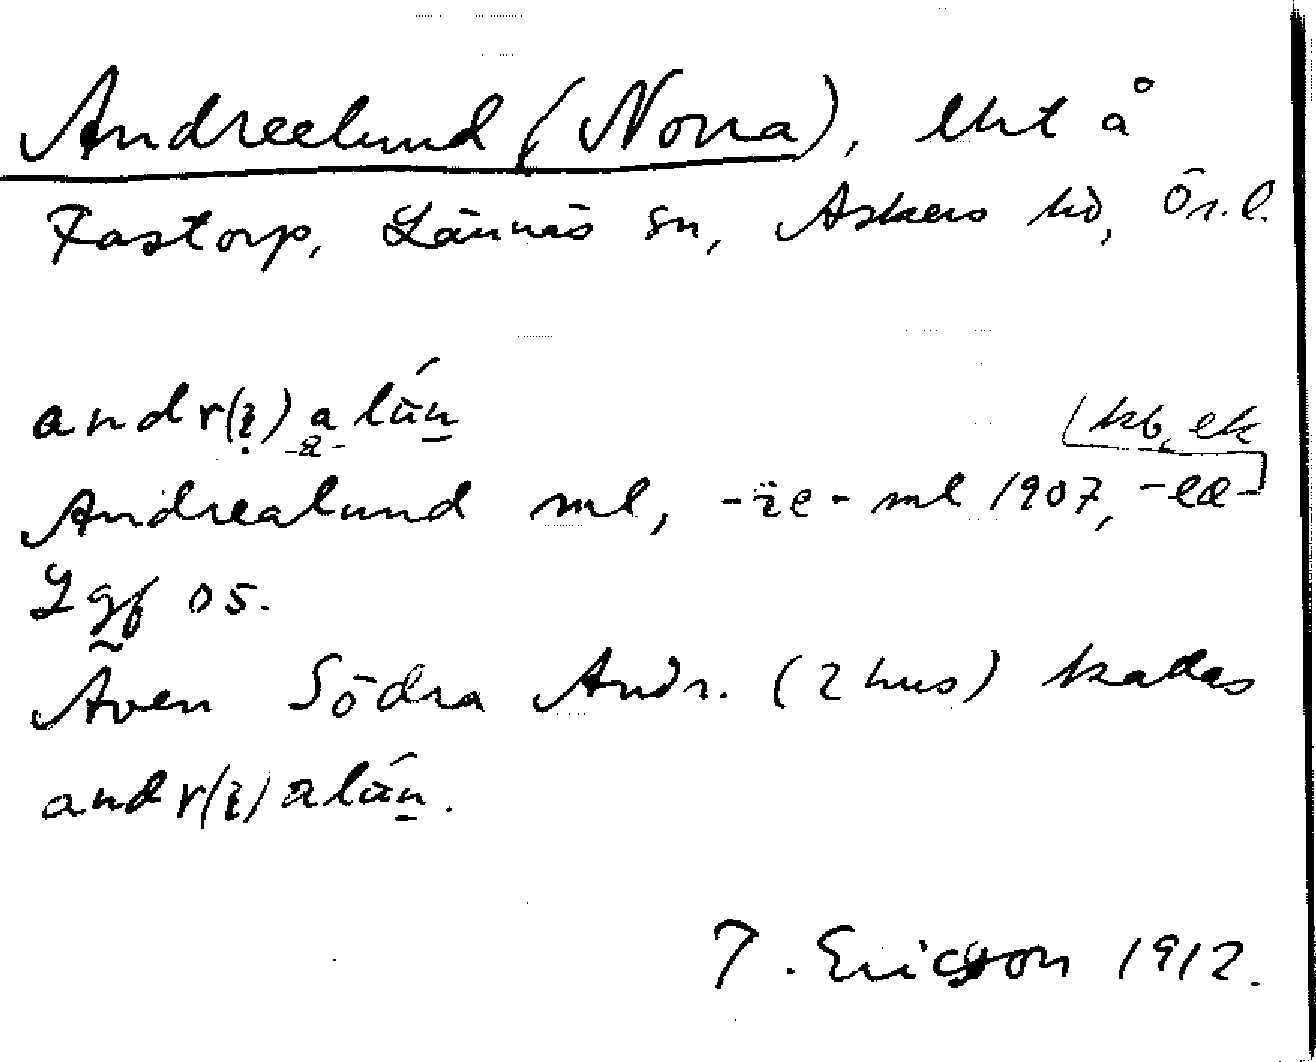 Andreelund (Norra), lht å
Fastorp, Lännäs sn, Askers hd, Ör. l.
andr(i) a lún
-a-
kb, ek
Andrealund ml, -ie- ml 1907, -ea-
Lgf 05.
Även Södra Andr. (2 hus) kallas
andr(i) alún.
T. Ericsson 1912.